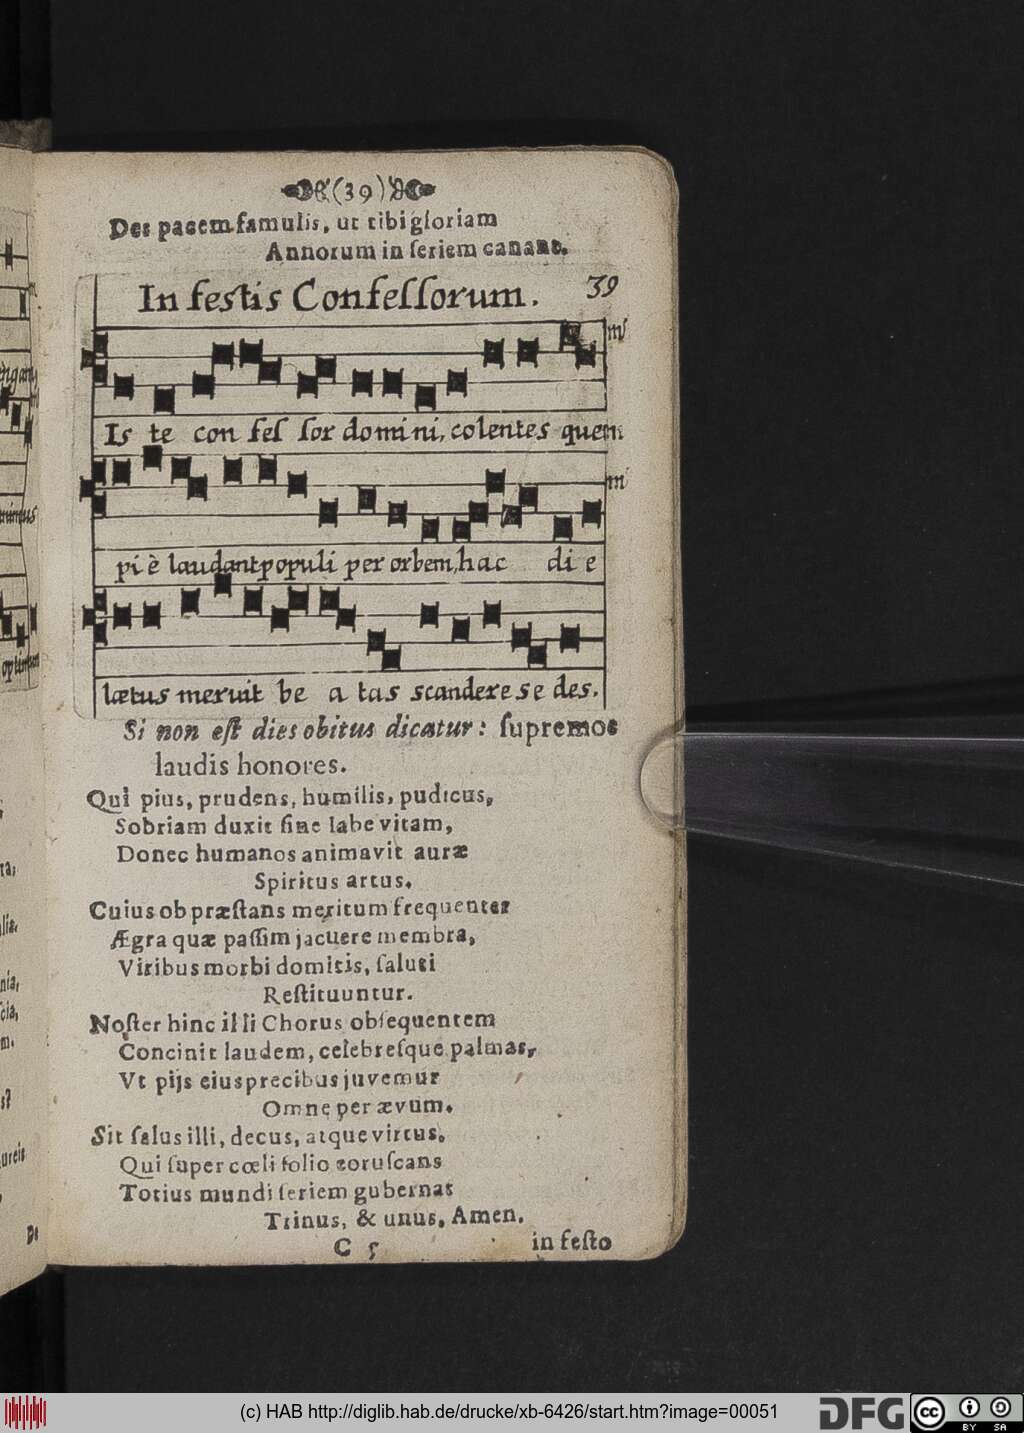 (39)
Des pacem famulis, ut tibi gloriam
Annorum in ſeriem canant.
In feſtis Confeſſorum. 39
Is te con feſ ſor domini, colentes quem
pi è laudant populi per orbem, hac di e
lætus meruit be a tas scandere se des.
Si non eſt dies obitus dicatur: ſupremos
laudis honores.
Qui pius, prudens, humilis, pudicus,
Sobriam duxit ſine labe vitam,
Donec humanos animavit auræ
Spiritus artus.
Cuius ob præſtans meritum frequenter
Ægra quæ paſſim jacuere membra,
Viribus morbi domitis, ſaluti
Reſtituuntur.
Noſter hinc illi Chorus obſequentem
Concinit laudem, celebreſque palmas,
Vt pijs eius precibus juvemur
Omne per ævum.
Sit ſalus illi, decus, atque virtus,
Qui ſuper cœli ſolio coruſcans
Totius mundi ſeriem gubernat
Trinus, & unus, Amen.
C 5 in feſto
(c) HAB http://diglib.hab.de/drucke/xb-6426/start.htm?image=00051
DFG
cc BY SA